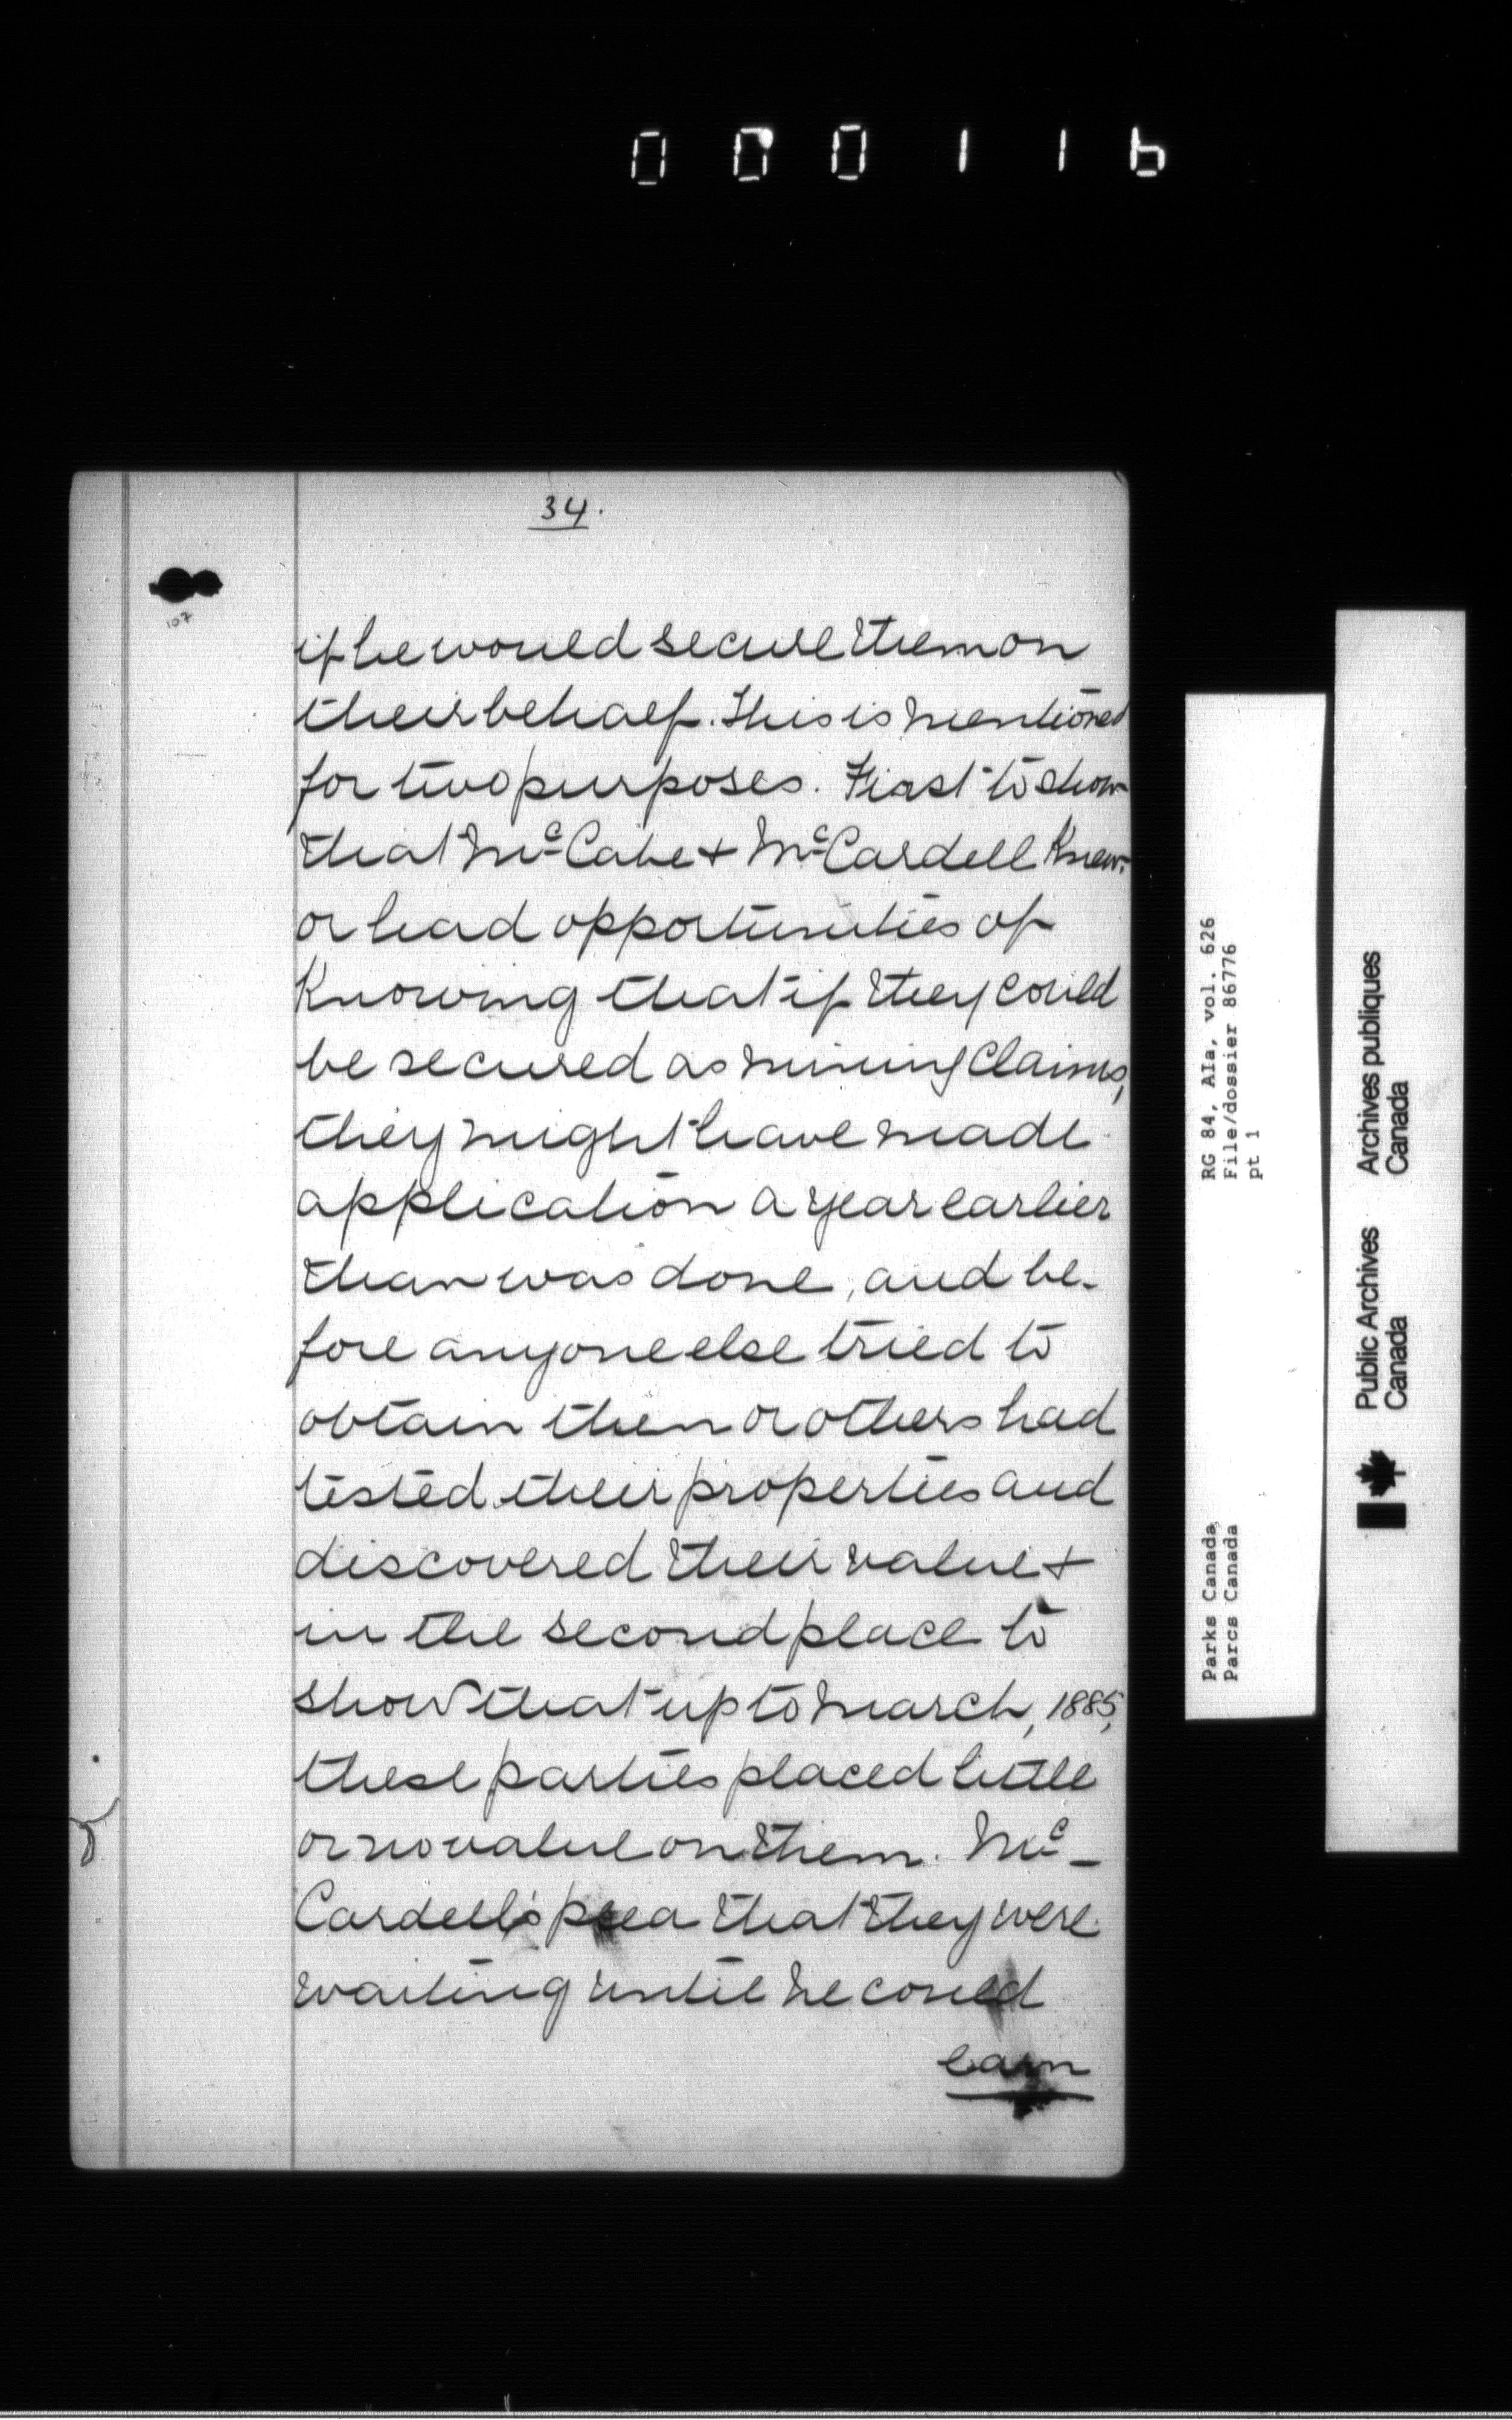 000116
34.
107
if he would secure them on
their behalf. This is mentioned
for two purposes. First to show
that McCabe + McCardell Knew
or had opportunities of
Knowing that if they could
be secured as mining Claims,
they might have made
application a year earlier
than was done, and be-
fore anyone else tried to
obtain them or others had
tested their properties and
discovered their value +
in the second place to
show that up to March, 1885,
these parties placed little
or no value on them. Mc-
Cardell's plea that they were
waiting until he could
earn
RG 84, AIa, vol. 626
File/dossier 86776
pt 1
Parks Canada
Parcs Canada
Public Archives
Canada
Archives publiques
Canada